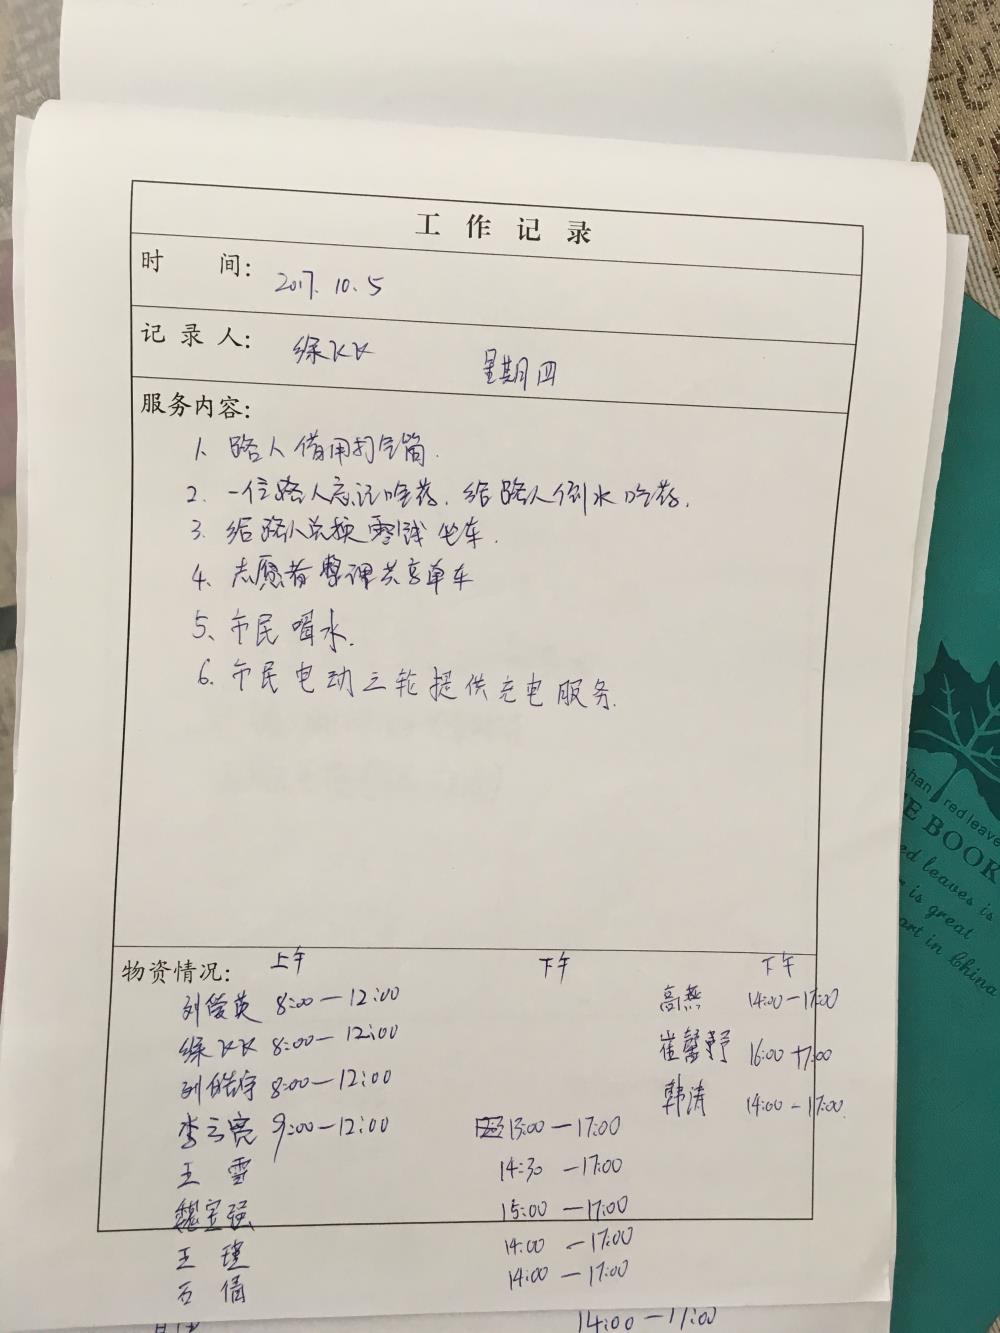 工作记录
时 间: 2017. 10. 5
记录人: 徐KK 星期四
服务内容:
1. 路人借用打气筒.
2. 一位路人忘记吃药. 给路人倒水吃药.
3. 给路人兑换零钱坐车.
4. 志愿者整理共享单车
5、市民喝水.
6. 市民电动三轮提供充电服务.
物资情况: 上午 下午 下午
刘俊英 8:00—12:00 高燕 14:00-17:00
徐KK 8:00—12:00 崔馨予 16:00 17:00
刘皓宇 8:00—12:00 韩涛 14:00-17:00
李云亮 9:00—12:00 13:00—17:00
王雪 14:30—17:00
魏宝强 15:00—17:00
王瑾 14:00—17:00
石倩 14:00—17:00
14:00—17:00
han red leave
E BOOK
ed leaves is
is great
art in China